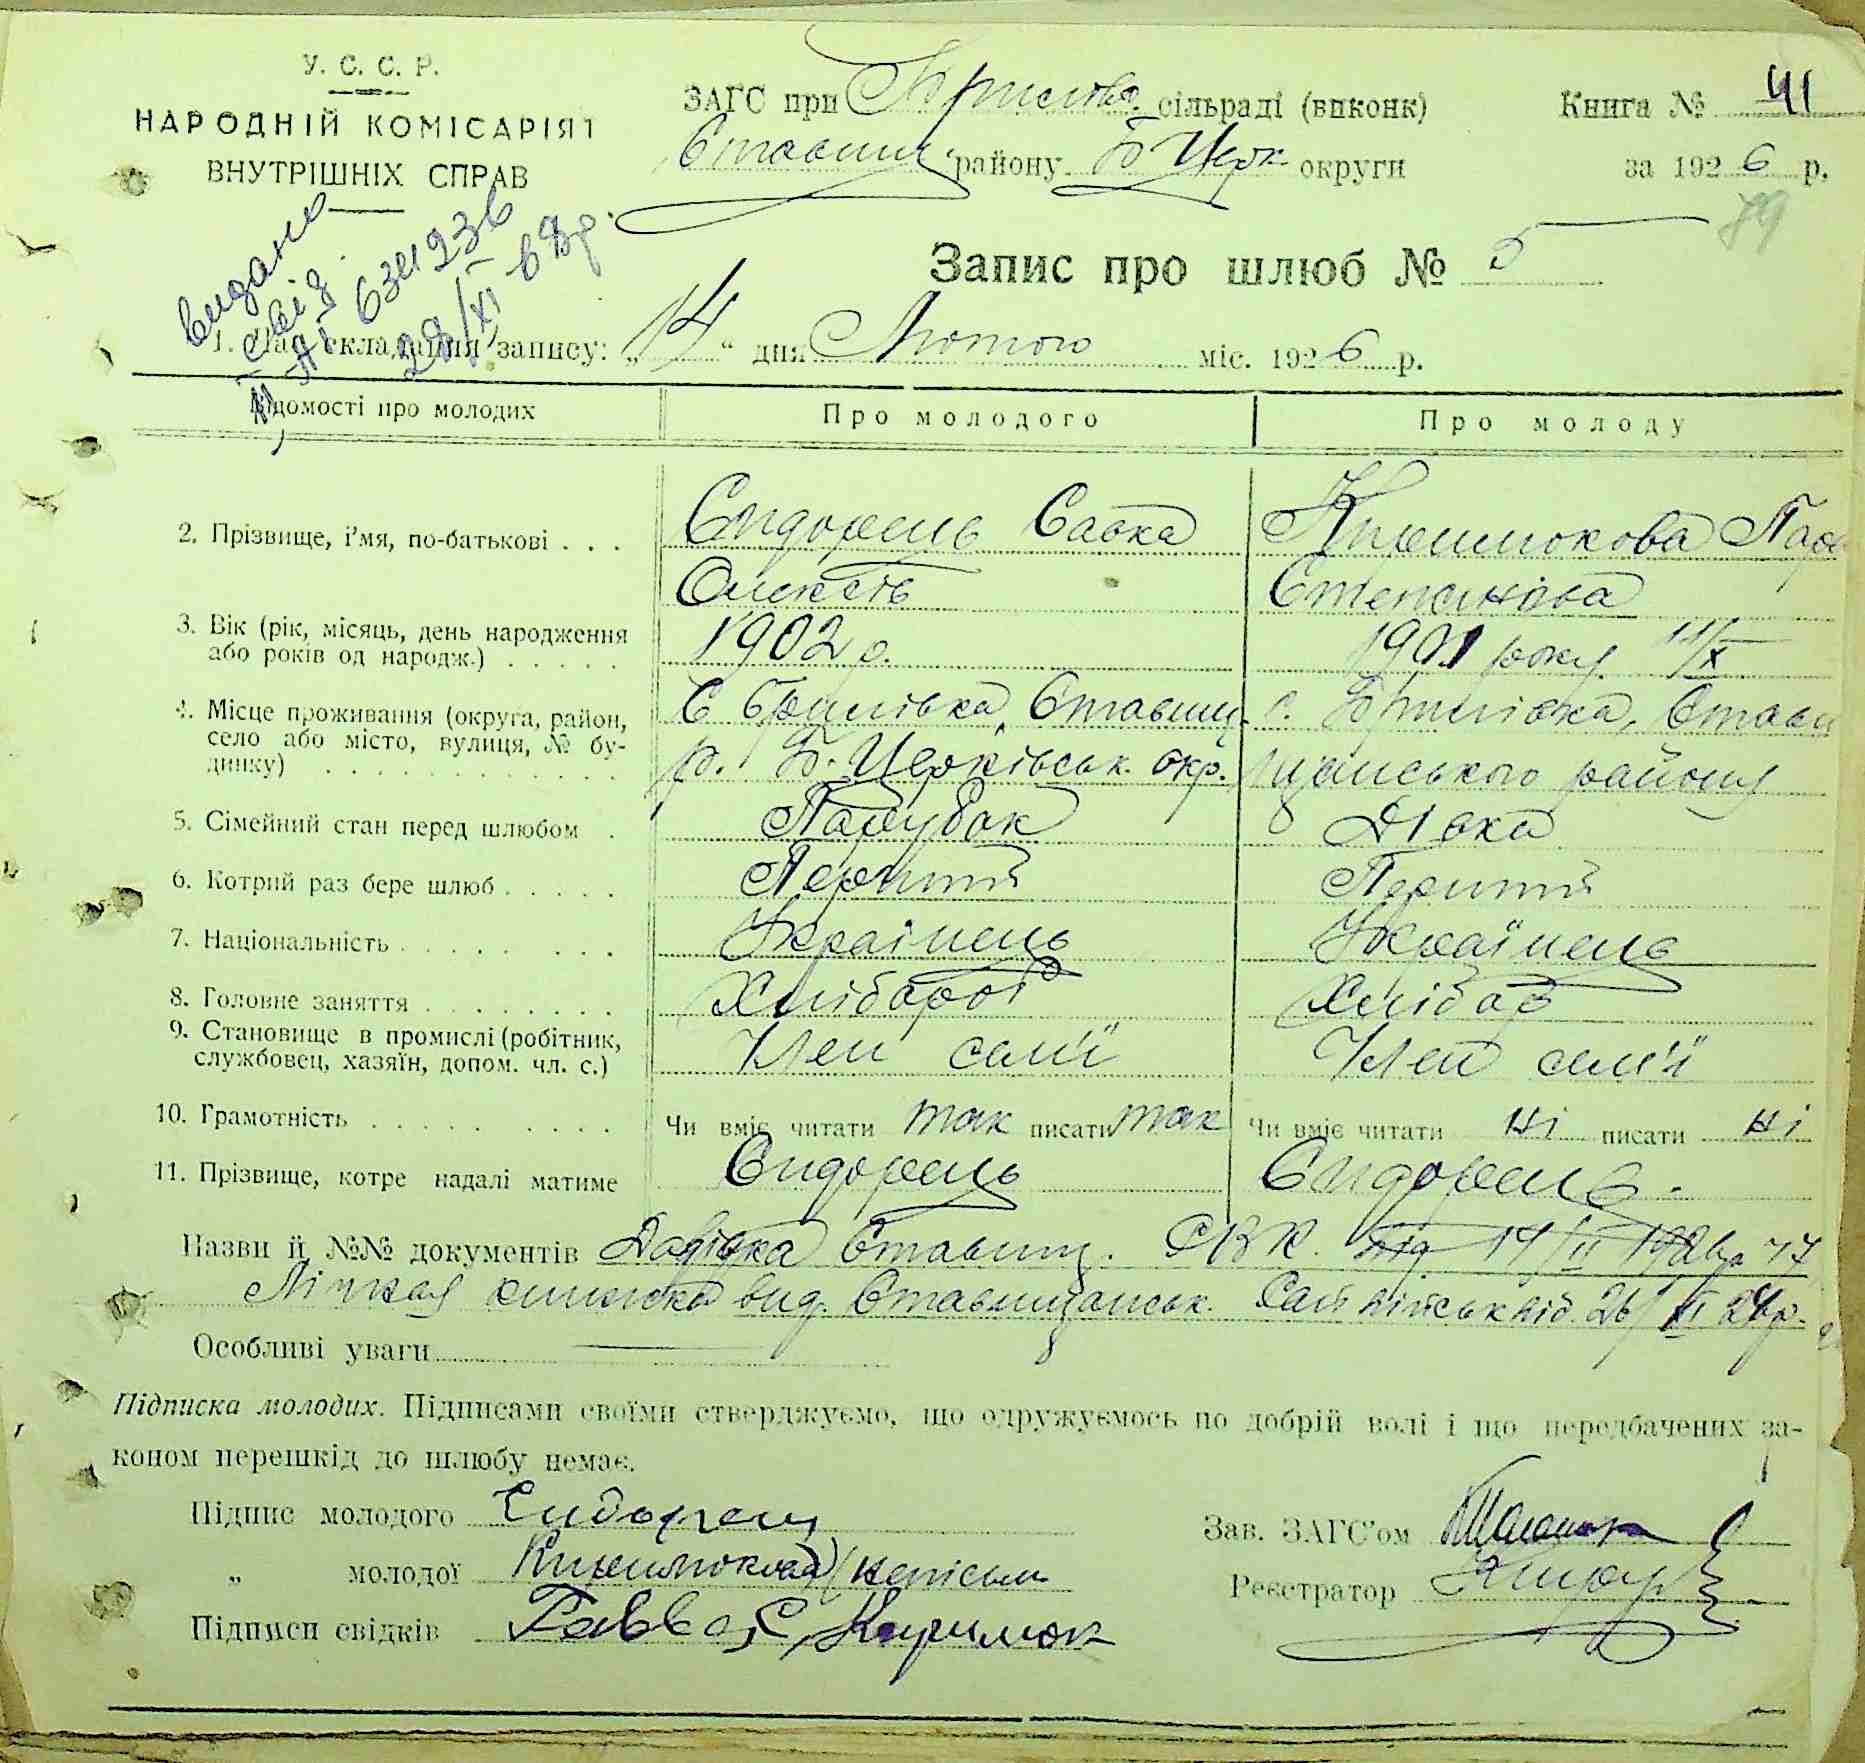 У. С. С. Р.
НАРОДНІЙ КОМІСАРІЯТ
ВНУТРІШНІХ СПРАВ
ЗАГС при сільраді (виконк)
Ставищ району Б Церк округи
Книга № 41
за 1926 р.
79
видано
свід.
28/XI-68р.
Запис про шлюб № 5
1. Час складання запису: „14“ дня Лютого міс. 1926 р.
Відомості про молодих
Про молодого
Про молоду
2. Прізвище, і'мя, по-батькові . . .
Сидорець Савка
Олексів
Киримокова Пар
Степанова
3. Вік (рік, місяць, день народження
або років од народж.) . . . . .
1902 р.
1901 року 11/X
4. Місце проживання (округа, район,
село або місто, вулиця, № бу-
динку) . . . . . . . . . . . .
С Брилівка, Ставищ.
р. Б. Церківськ. окр.
с. Брилівка, Стави
щанського району
5. Сімейний стан перед шлюбом .
Парубок
Дівка
6. Котрий раз бере шлюб . . . . .
Перший
Перший
7. Національність . . . . . . . .
Українець
Українець
8. Головне заняття . . . . . . . .
Хлібороб
Хлібор
9. Становище в промислі (робітник,
службовец, хазяїн, допом. чл. с.)
Член сем'ї
Член сем'ї
10. Грамотність . . . . . . . . .
Чи вміє читати так писати так
Чи вміє читати ні писати ні
11. Прізвище, котре надалі матиме
Сидорець
Сидорець.
Назви й №№ документів Довідка Ставищ. РВК. від 14/II 1926р
книжка вид. Ставищанськ.
Особливі уваги
Підписка молодих. Підписами своїми стверджуємо, що одружуємось по добрій волі і що передбачених за-
коном перешкід до шлюбу немає.
Підпис молодого Сидорец
„ молодої Киримокова
Підписи свідків Киримок
Зав. ЗАГС'ом
Реєстратор